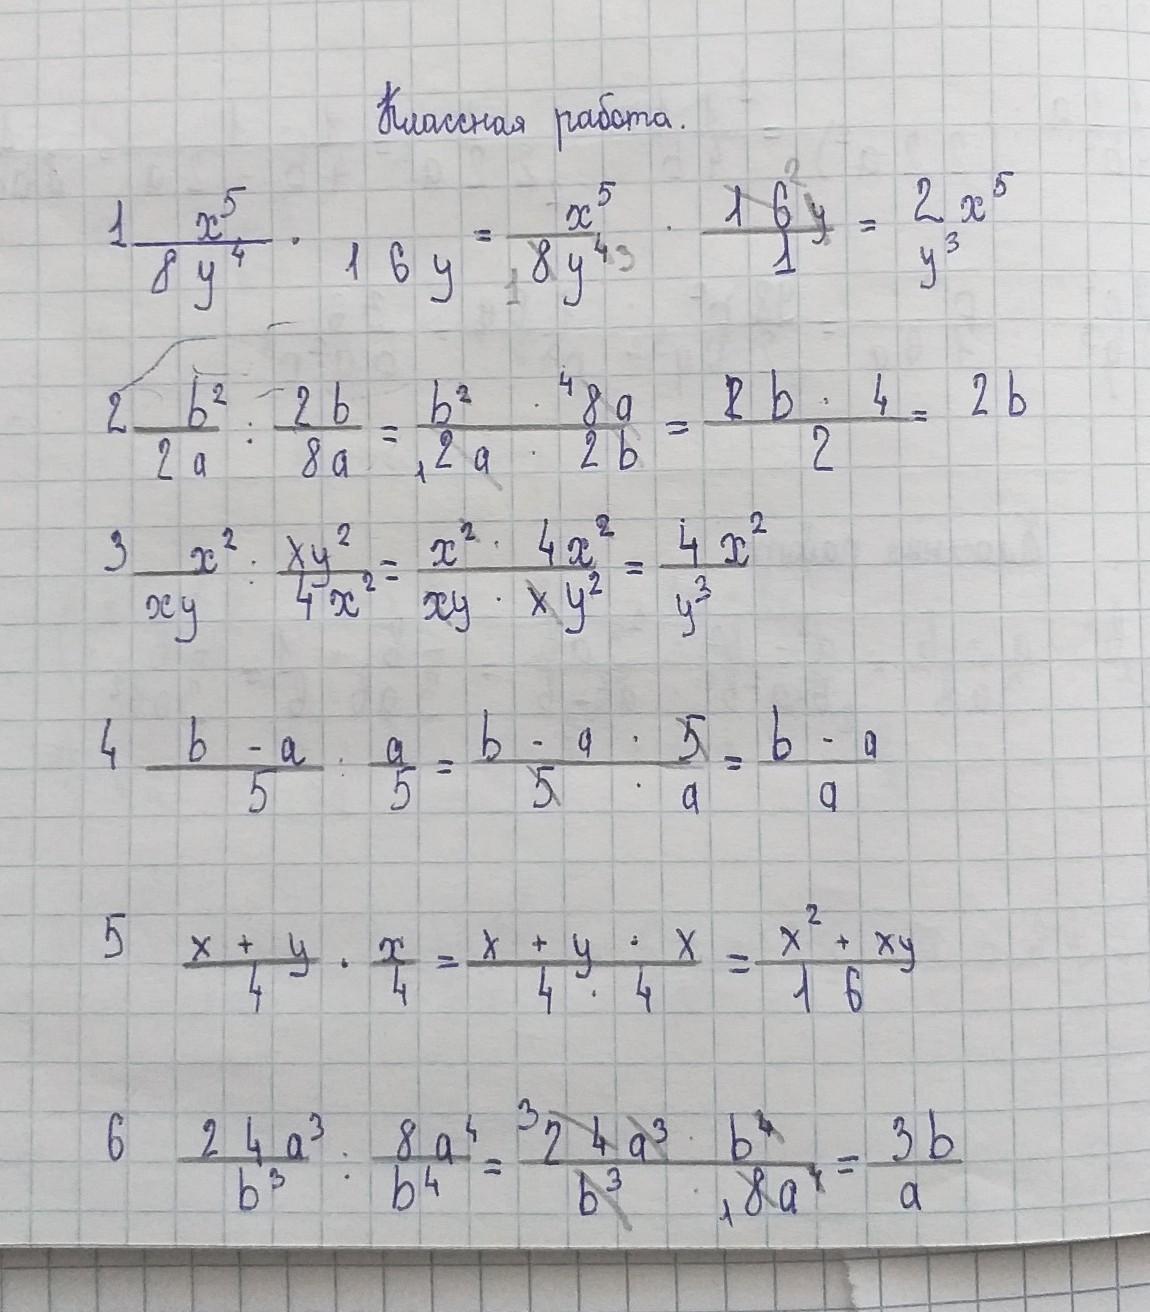 Классная работа.
1 x⁵/8y⁴ · 16y = x⁵/8y⁴ ³ ₁ · 16y ²/1 = 2x⁵/y³
2 b²/2a : 2b/8a = b² · ⁴8a/₁2a · 2b = 2b · 4/2 = 2b
3 x²/xy : xy²/4x² = x² · 4x²/xy · xy² = 4x²/y³
4 b - a/5 : a/5 = b - a · 5/5 · a = b - a/a
5 x + y/4 · x/4 = x + y · x/4 · 4 = x² + xy/16
6 24a³/b³ : 8a⁴/b⁴ = ³24a³ · b⁴/b³ · ₁8a⁴ = 3b/a